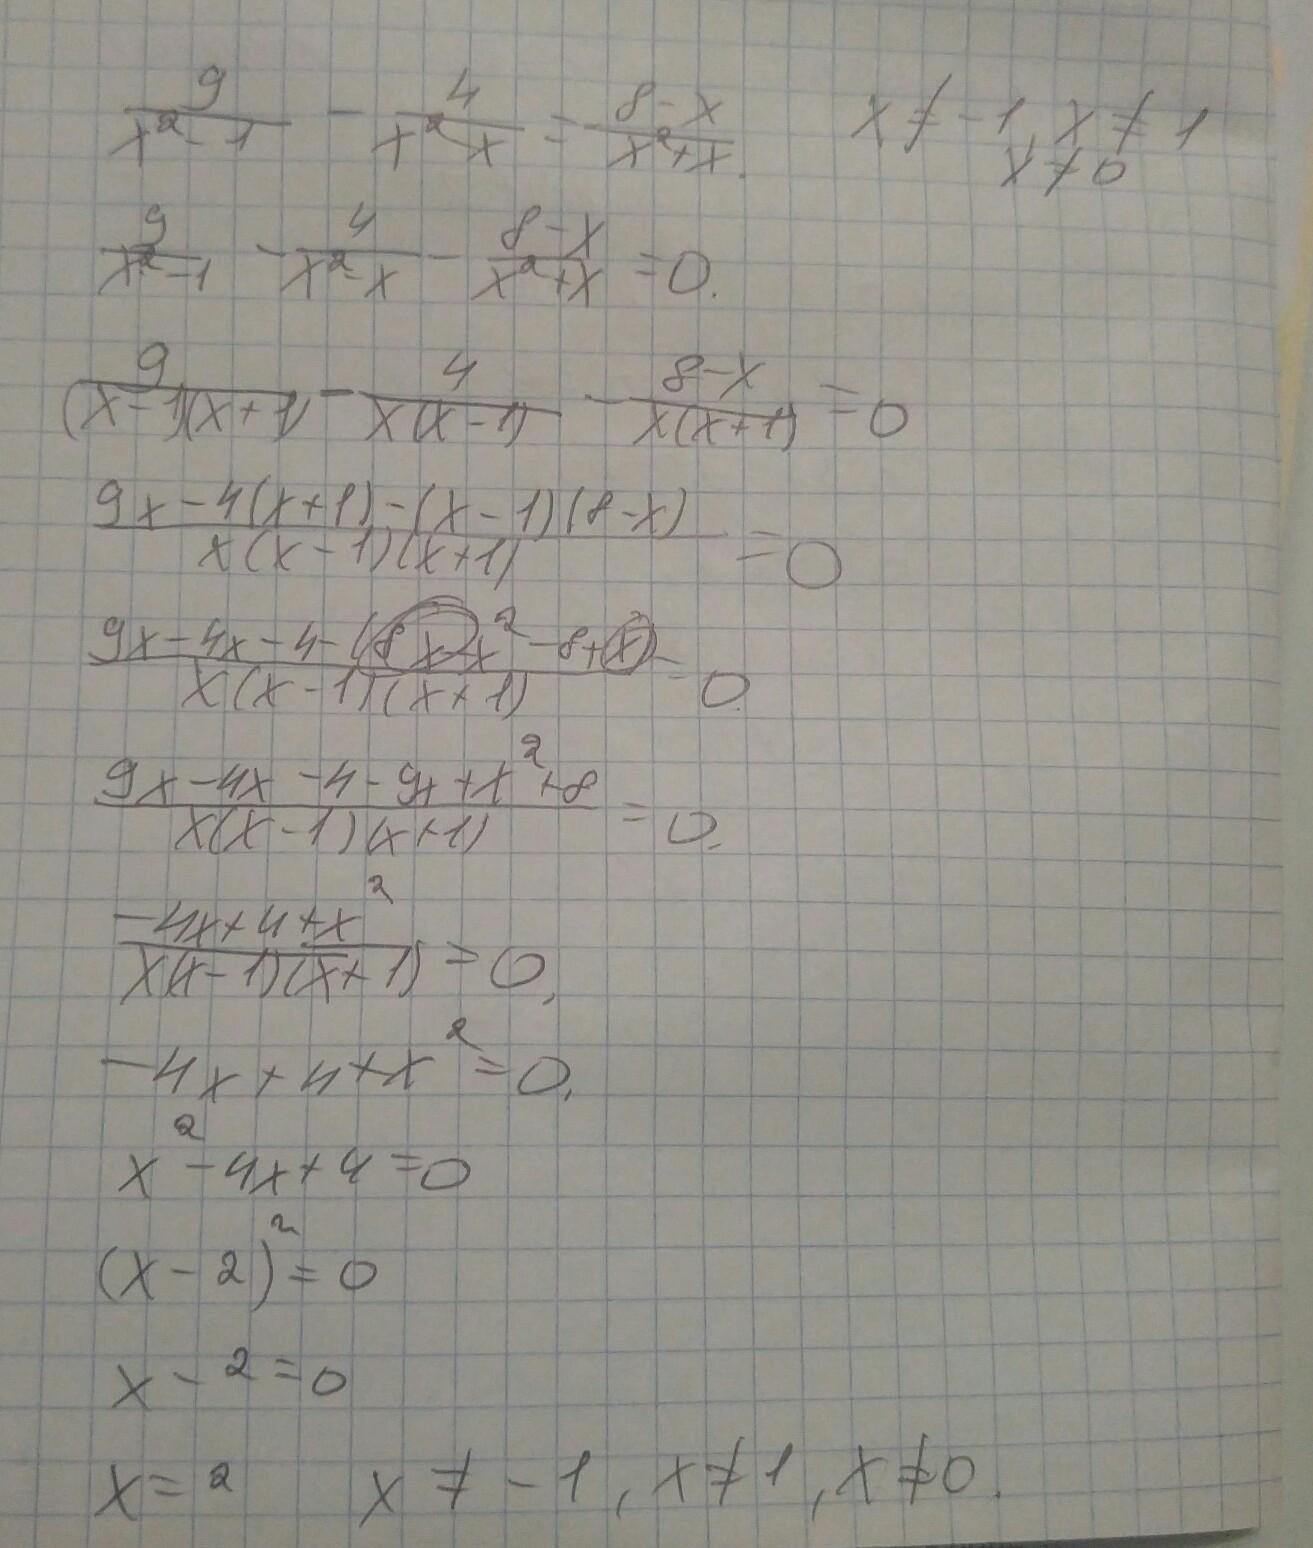 9/(x²-1) - 4/(x²-x) = (8-x)/(x²+x). x ≠ -1, x ≠ 1
x ≠ 0
9/(x²-1) - 4/(x²-x) - (8-x)/(x²+x) = 0.
9/((x-1)(x+1)) - 4/(x(x-1)) - (8-x)/(x(x+1)) = 0
(9x-4(x+1)-(x-1)(8-x))/(x(x-1)(x+1)) = 0
(9x-4x-4-(8x-x²-8+x))/(x(x-1)(x+1)) = 0
(9x-4x-4-9x+x²+8)/(x(x-1)(x+1)) = 0.
(-4x+4+x²)/(x(x-1)(x+1)) = 0,
-4x+4+x²=0,
x²-4x+4=0
(x-2)²=0
x-2=0
x=2 x ≠ -1, x ≠ 1, x ≠ 0.